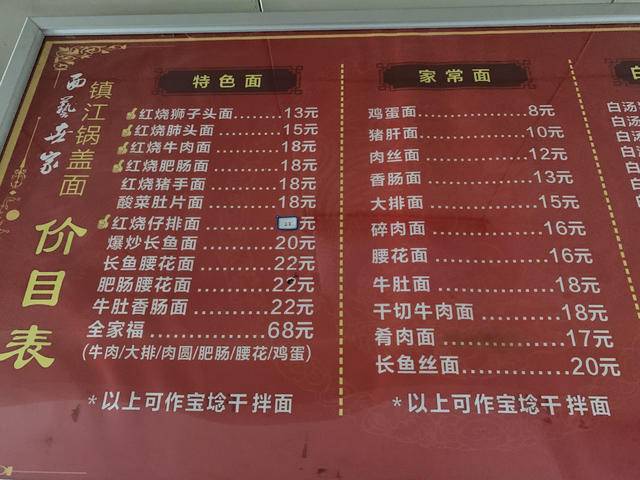 西艺王家
镇江锅盖面
价目表
特色面
红烧狮子头面........13元
红烧肺头面..........15元
红烧牛肉面..........18元
红烧肥肠面..........18元
红烧猪手面..........18元
酸菜肚片面..........18元
红烧仔排面..........元
爆炒长鱼面..........20元
长鱼腰花面..........22元
肥肠腰花面..........22元
牛肚香肠面..........22元
全家福..............68元
(牛肉/大排/肉圆/肥肠/腰花/鸡蛋)
*以上可作宝埝干拌面
家常面
鸡蛋面..............8元
猪肝面..............10元
肉丝面..............12元
香肠面..............13元
大排面..............15元
碎肉面..............16元
腰花面..............16元
牛肚面..............18元
干切牛肉面..........18元
肴肉面..............17元
长鱼丝面............20元
*以上可作宝埝干拌面
白
白汤
白汤
白汤
白汤